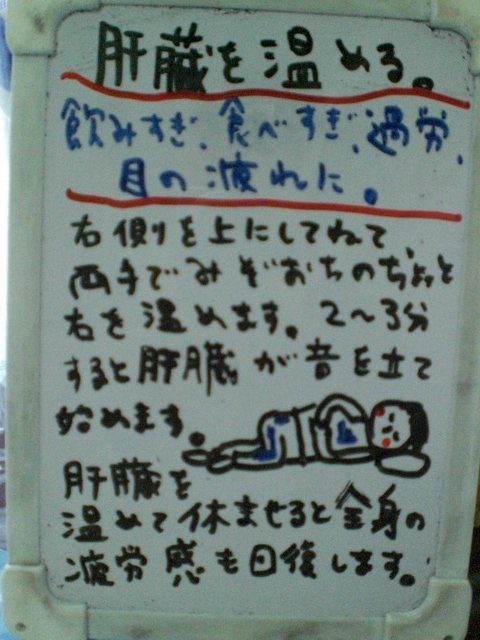 肝臓を温める。
飲みすぎ、食べすぎ、過労、
目の疲れに。
右側を上にしてねて、
両手でみぞおちのちょっと
右を温めます。2〜3分
すると肝臓が音を立て
始めます。
肝臓を
温めて休ませると全身の
疲労感も回復します。